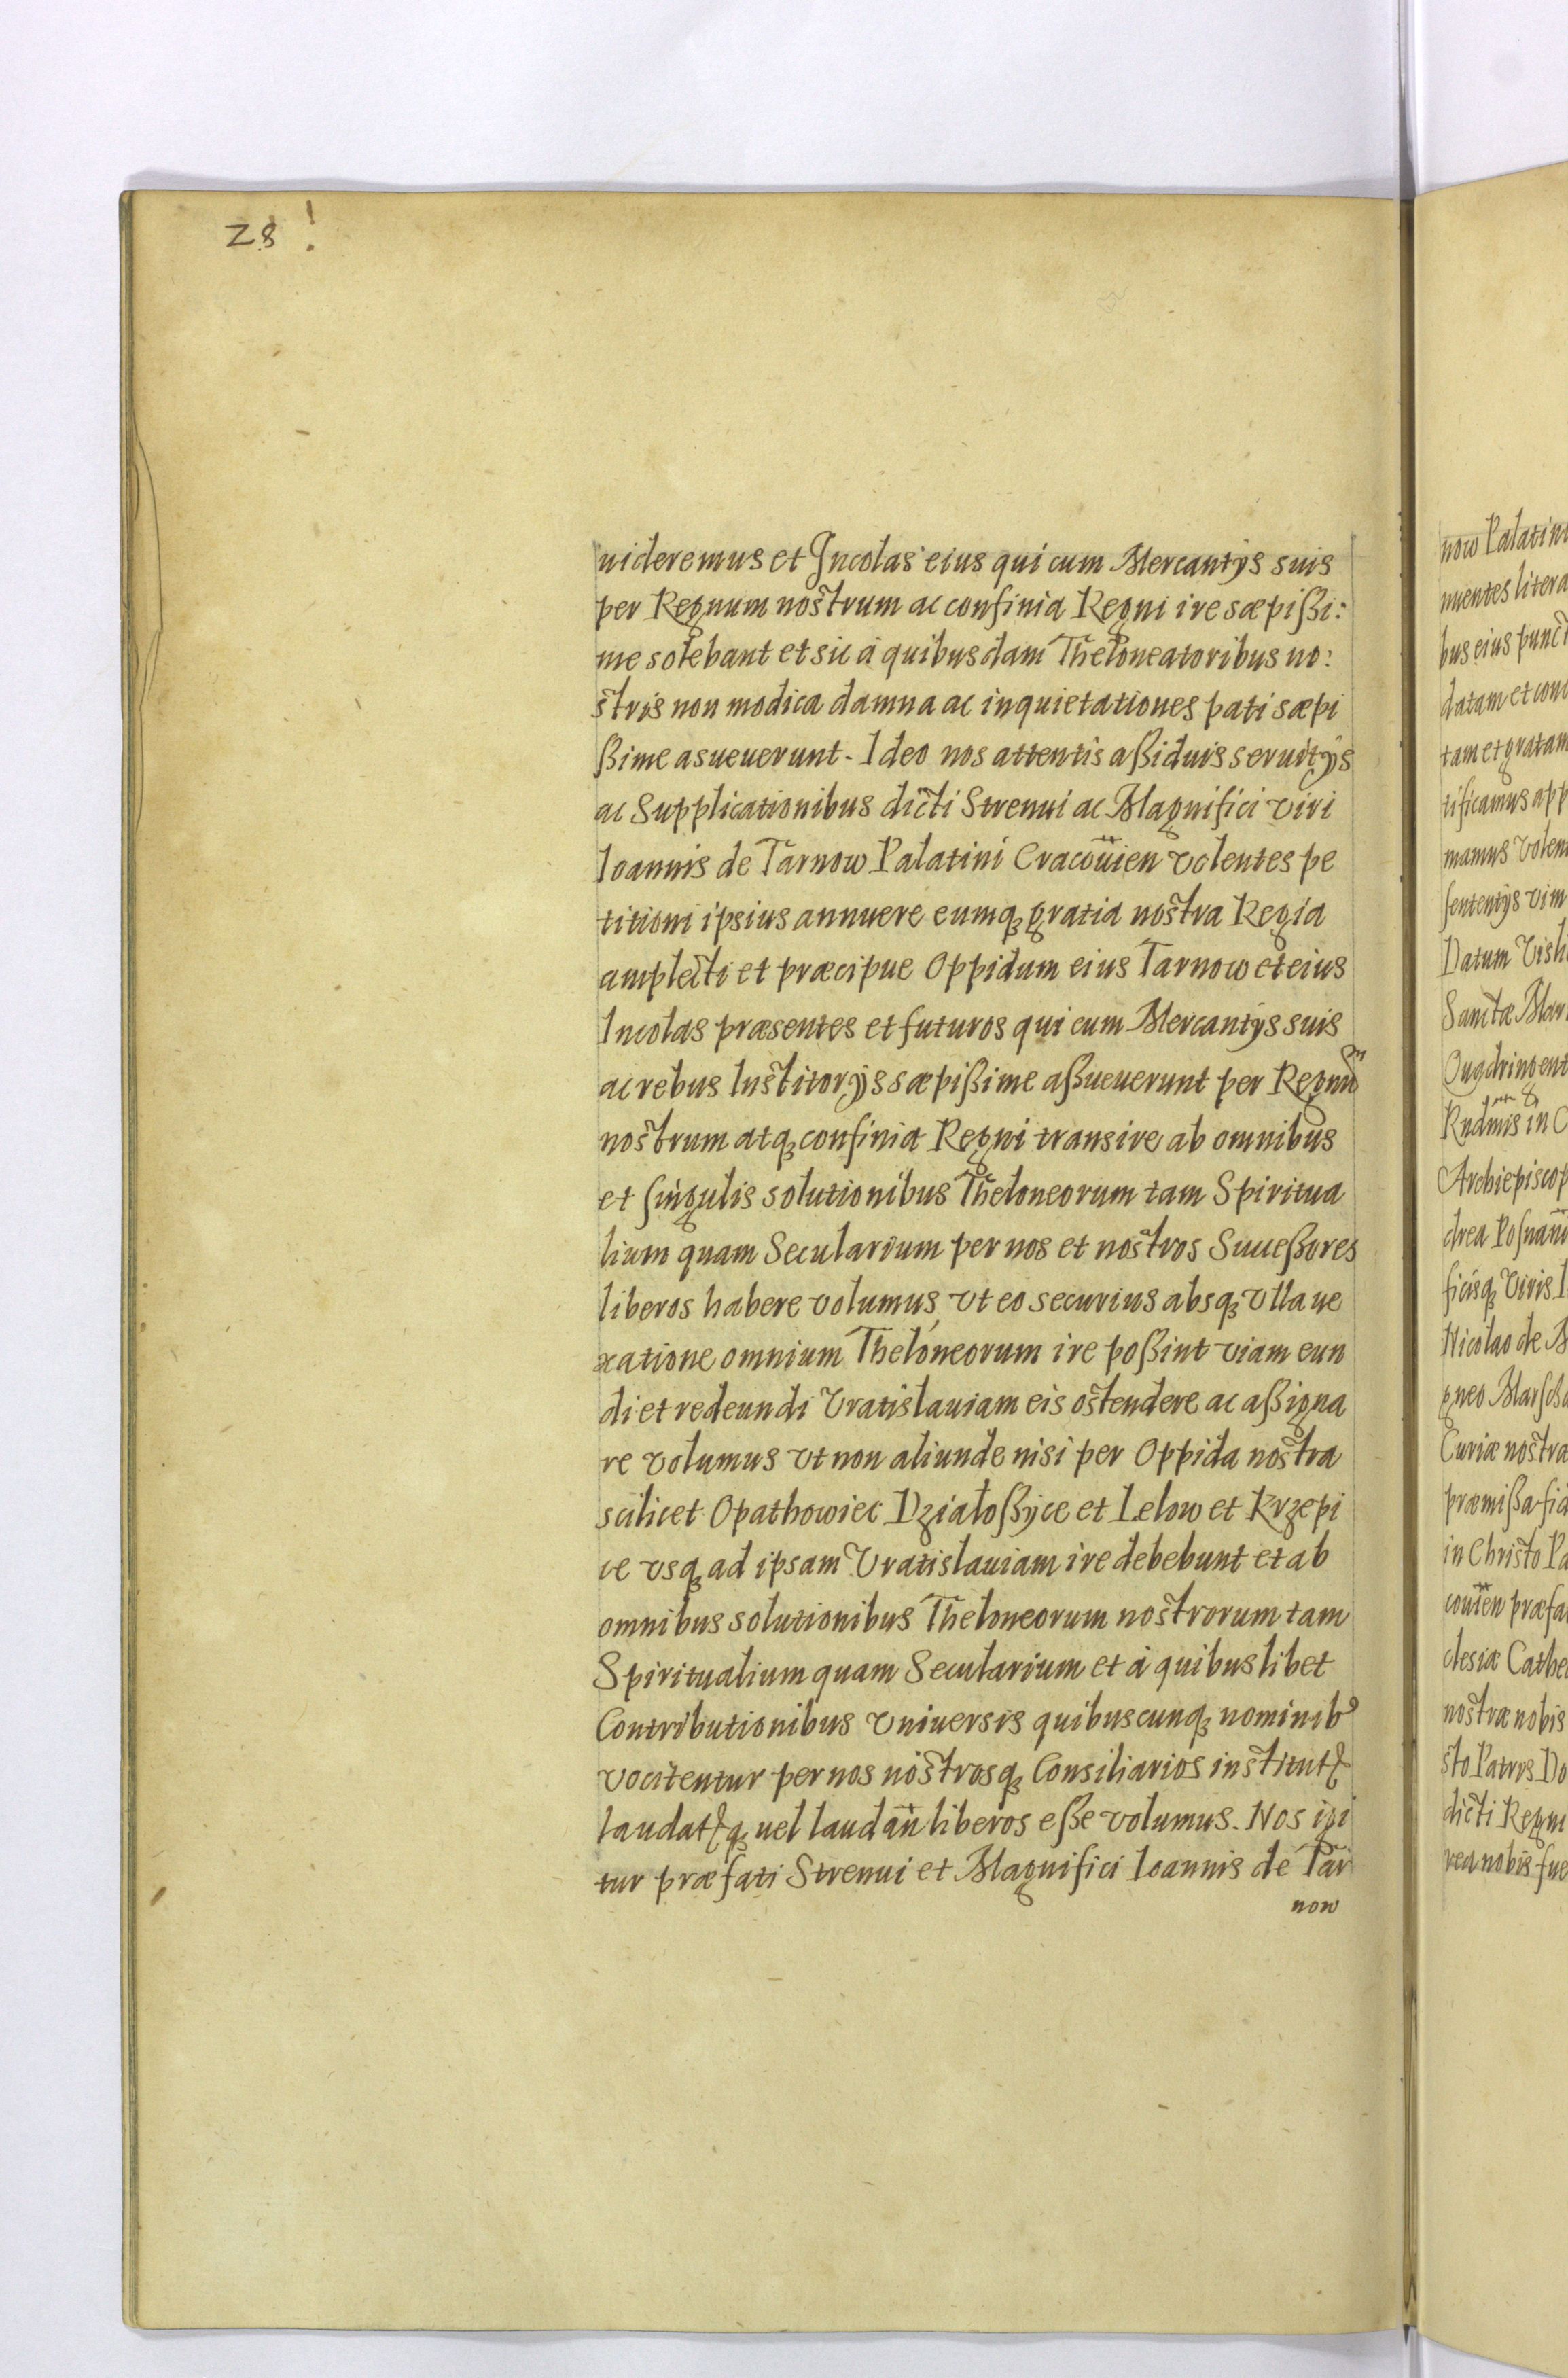 28!
uideremus et Incolas eius qui cum Mercantijs suis
per Regnum nostrum ac confinia Regni ire sæpißi:
me solebant et sic à quibusdam Theloneatoribus no:
stris non modica damna ac inquietationes pati sæpi
ßime asueuerunt. Ideo nos attentis aßiduis seruitijs
ac Supplicationibus dicti Strenui ac Magnifici viri
Ioannis de Tarnow Palatini Cracouien volentes pe
titioni ipsius annuere eumq gratia nostra Regia
amplecti et præcipue Oppidum eius Tarnow et eius
Incolas præsentes et futuros qui cum Mercantijs suis
ac rebus Institorijs sæpißime aßueuerunt per Regnum
nostrum atq confinia Regni transire ab omnibus
et singulis solutionibus Theloneorum tam Spiritua
lium quam Secularium per nos et nostros Succeßores
liberos habere volumus, vt eo securius absq vlla ue
xatione omnium Theloneorum ire poßint viam eun
di et redeundi Vratislauiam eis ostendere ac aßigna
re volumus vt non aliunde nisi per Oppida nostra
scilicet Opathowiec Działoßyce et Lelow et Krzepi
ce vsq ad ipsam Vratislauiam ire debebunt et ab
omnibus solutionibus Theloneorum nostrorum tam
Spiritualium quam Secularium et à quibuslibet
Contributionibus vniuersis quibuscunq nominib9
vocitentur per nos nostrosq Consiliarios institutꝭ
laudatꝭq uel laudan liberos eße volumus. Nos igi
tur præfati Strenui et Magnifici Ioannis de Tar
now
now Palatin
nuentes litera
bus eius punct
datam et conc
tam et gratam
tificamus app
mamus volen
sententijs vim
Datum Visli
Sanctæ Mar
Quadringent
Rndmis in C
Archiepiscop
drea Posnani
ficisq Viris I
Nicolao de M
gneo Marscha
Curiæ nostra
præmißa fid
in Christo Pa
couien præfa
clesiæ Cathe
nostræ nobis
sto Patris Do
dicti Regni
rea nobis fue